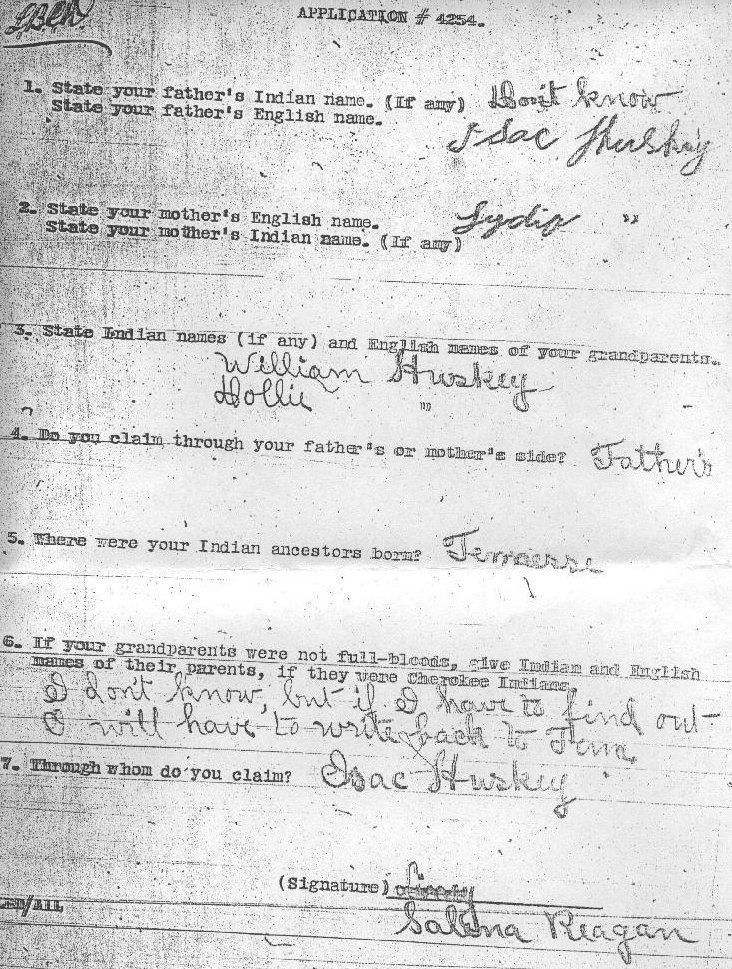 APPLICATION # 4254.
1. State your father's Indian name. (If any) Don't know
State your father's English name.
Isac Huskey
2. State your mother's English name. Lydia "
State your mother's Indian name. (If any)
3. State Indian names (if any) and English names of your grandparents.
William Huskey
Hollie "
4. Do you claim through your father's or mother's side? Father's
5. Where were your Indian ancestors born?
6. If your grandparents were not full-bloods, give Indian and English
names of their parents, if they were Cherokee Indians.
I don't know, but if I have to find out
I will have to write back to Tenn.
7. Through whom do you claim? Isac Huskey
(Signature)
Salena Reagan